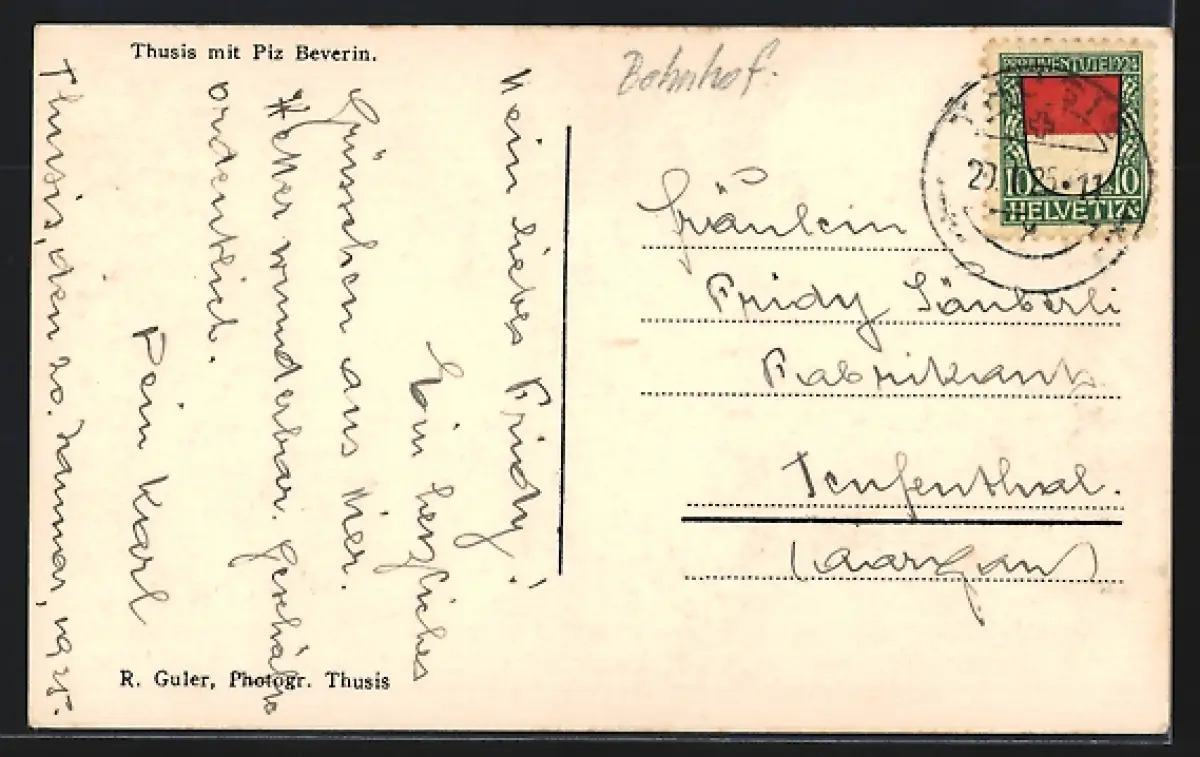 Thusis mit Piz Beverin.
Thusis, den 20. Januar, 1925.
Mein liebes Fridy!
Ein herzliches
Grüsschen aus hier.
Wetter wunderbar. Geschäfte
ordentlich.
Dein Karl
R. Guler, Photogr. Thusis
Bahnhof.
PRO JUVENTUTE 1924
10 10
HELVETIA
Fräulein
Fridy
Fabrikants
Teufenthal.
(Aargau)